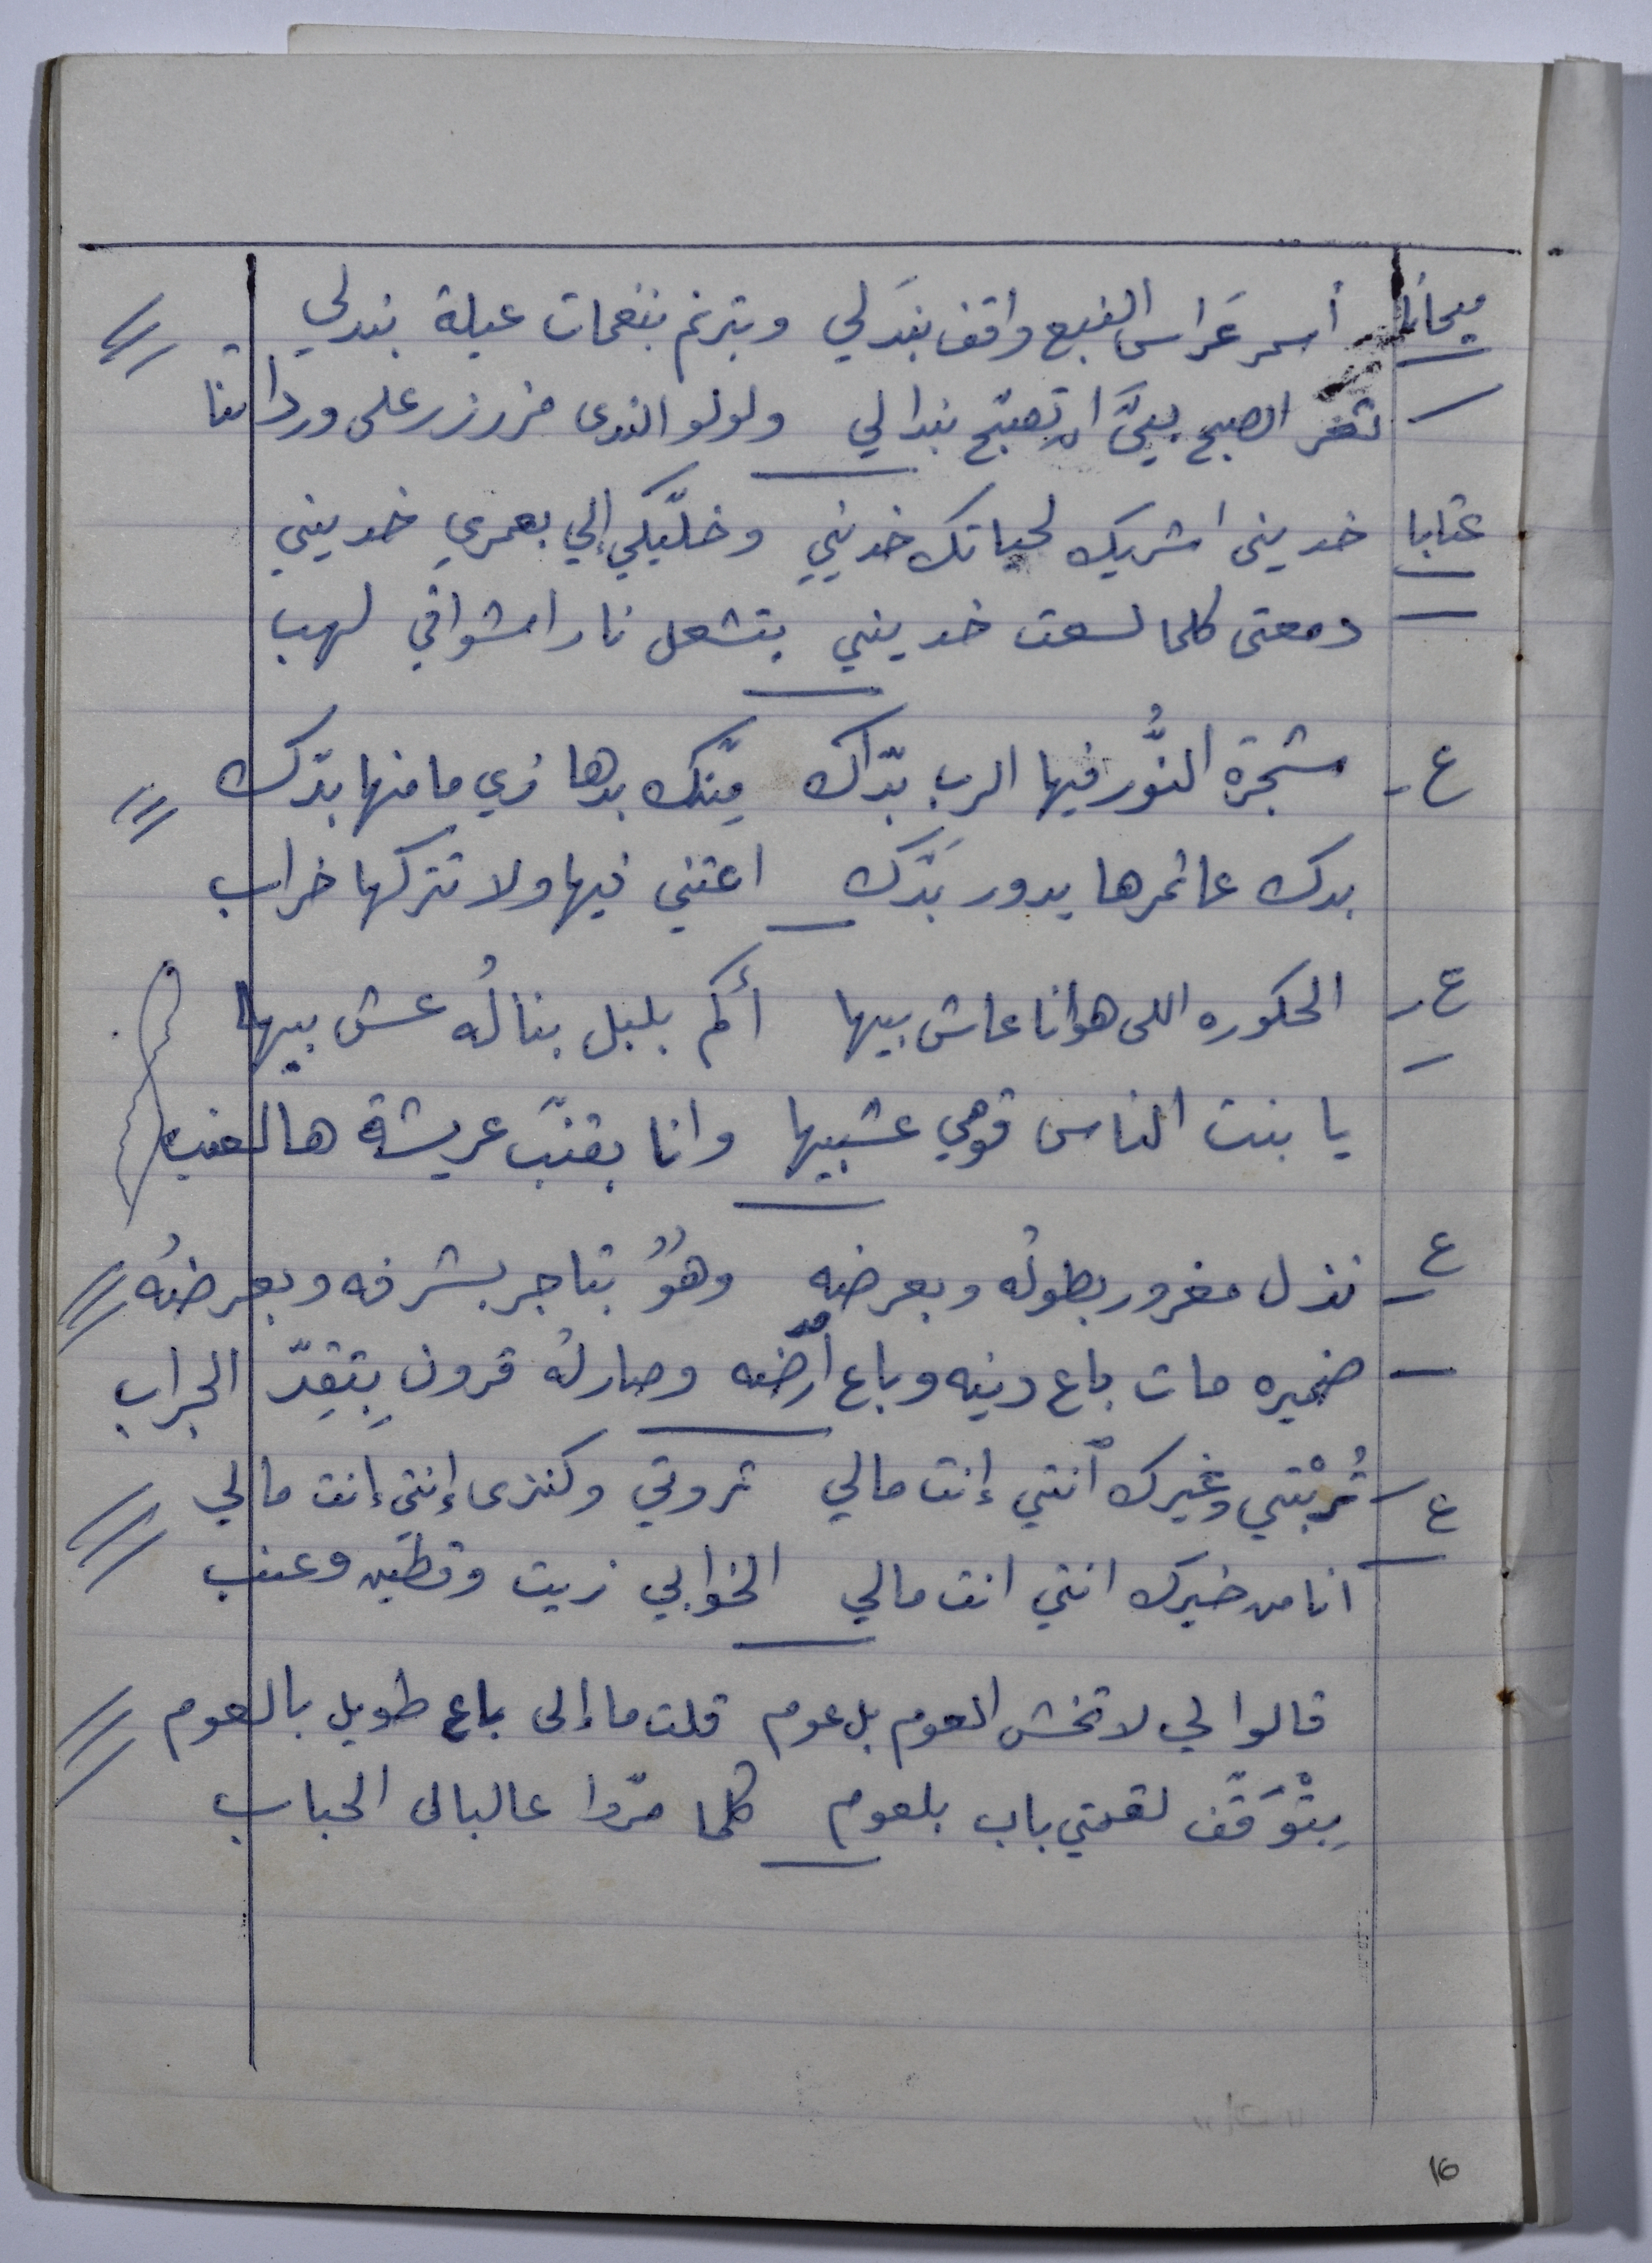 ميجانا أسمر عَراس النبع واقف بندَلي وبترنم بنغمات عيلة بندلي
ثغر الصبح بيَّ ان تصبّح بندا لي ولولو الندى مزرزر على وردا تنا
عتابا خديني اشريك لحياتك خديني وخلّيكي إلي بعمري خديني
دمعتى كلما لسعت خديني بتشعل نار اشواقي لهب
ع- شجرة النُّور فيها الرب بدّاك مِنّك بدها زي ما منها بدّك
بدك عاثمرها يدور بَدّك اعتني فيها ولا تتركها خراب
ع- الحكوره اللى هوانا عاش بيها أكم بلبل بنالُه عش بيها
يا بنت الناس قومي عشبيها وانا بقنّب عريشة هالعنب
ع- نذل مغرور بطولُه وبعرضه وهوُّ بتاجر بشرفه وبعرضُه
ضميره مات باع دينه وباع أرضه وصارلُه قرون بِتقِدّ الجراب
ع- تُربْتي وغيرك أنتي إنت مالي ثروتي وكنزى إنتي إنت مالي
انا من خيرك انتي انت مالي الخوابي زيت وقطين وعنب
قالوا لي لا تخش العوم بل عوم قلت ما إلى باع طويل بالعوم
بِتْوَقَّف لقمتي باب بلعوم كلما مرّوا عالبالى الحباب
16